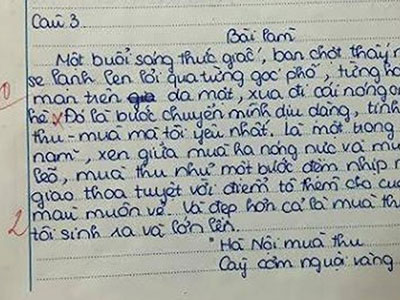 Câu 3.
Bài làm
Một buổi sáng thức giấc, bạn chợt thấy
se lạnh len lỏi qua từng góc phố, từng
mạn trên da mặt, xua đi cái nóng
Đó là bước chuyển mình dịu dàng, tinh
thu - mùa mà tôi yêu nhất. Là một trong
năm, xen giữa mùa hạ nóng nực và
mùa thu như một bước đệm nhịp
giao thoa tuyệt vời điểm tô thêm cho
màu muôn vẻ. Và đẹp hơn cả là mùa
2 tôi sinh ra và lớn lên.
"Hà Nội mùa thu
Cây cơm nguội vàng